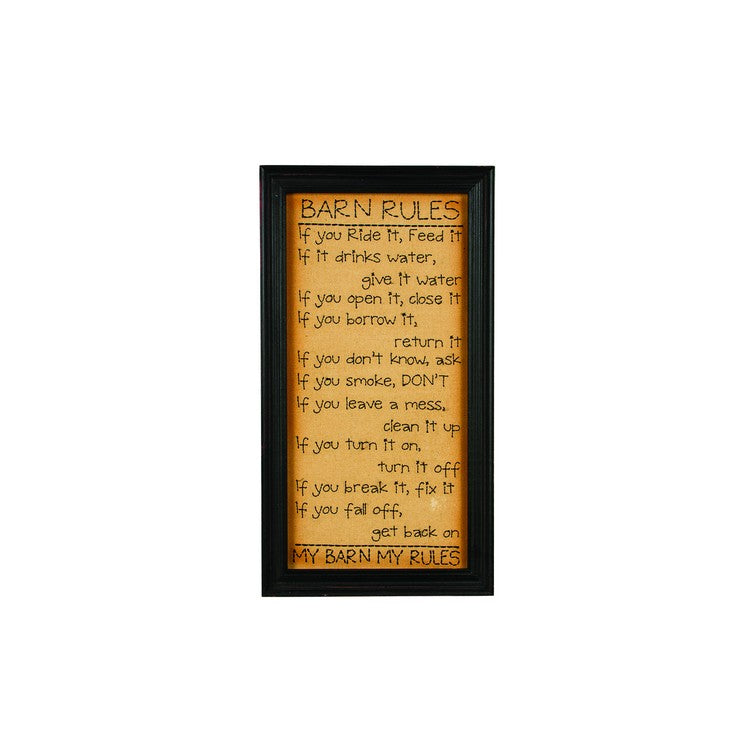 BARN RULES
If you Ride it, Feed it
If it drinks water,
give it water
If you open it, close it
If you borrow it,
return it
If you don't know, ask
If you smoke, DON'T
If you leave a mess,
clean it up
If you turn it on,
turn it off
If you break it, fix it
If you fall off,
get back on
MY BARN MY RULES